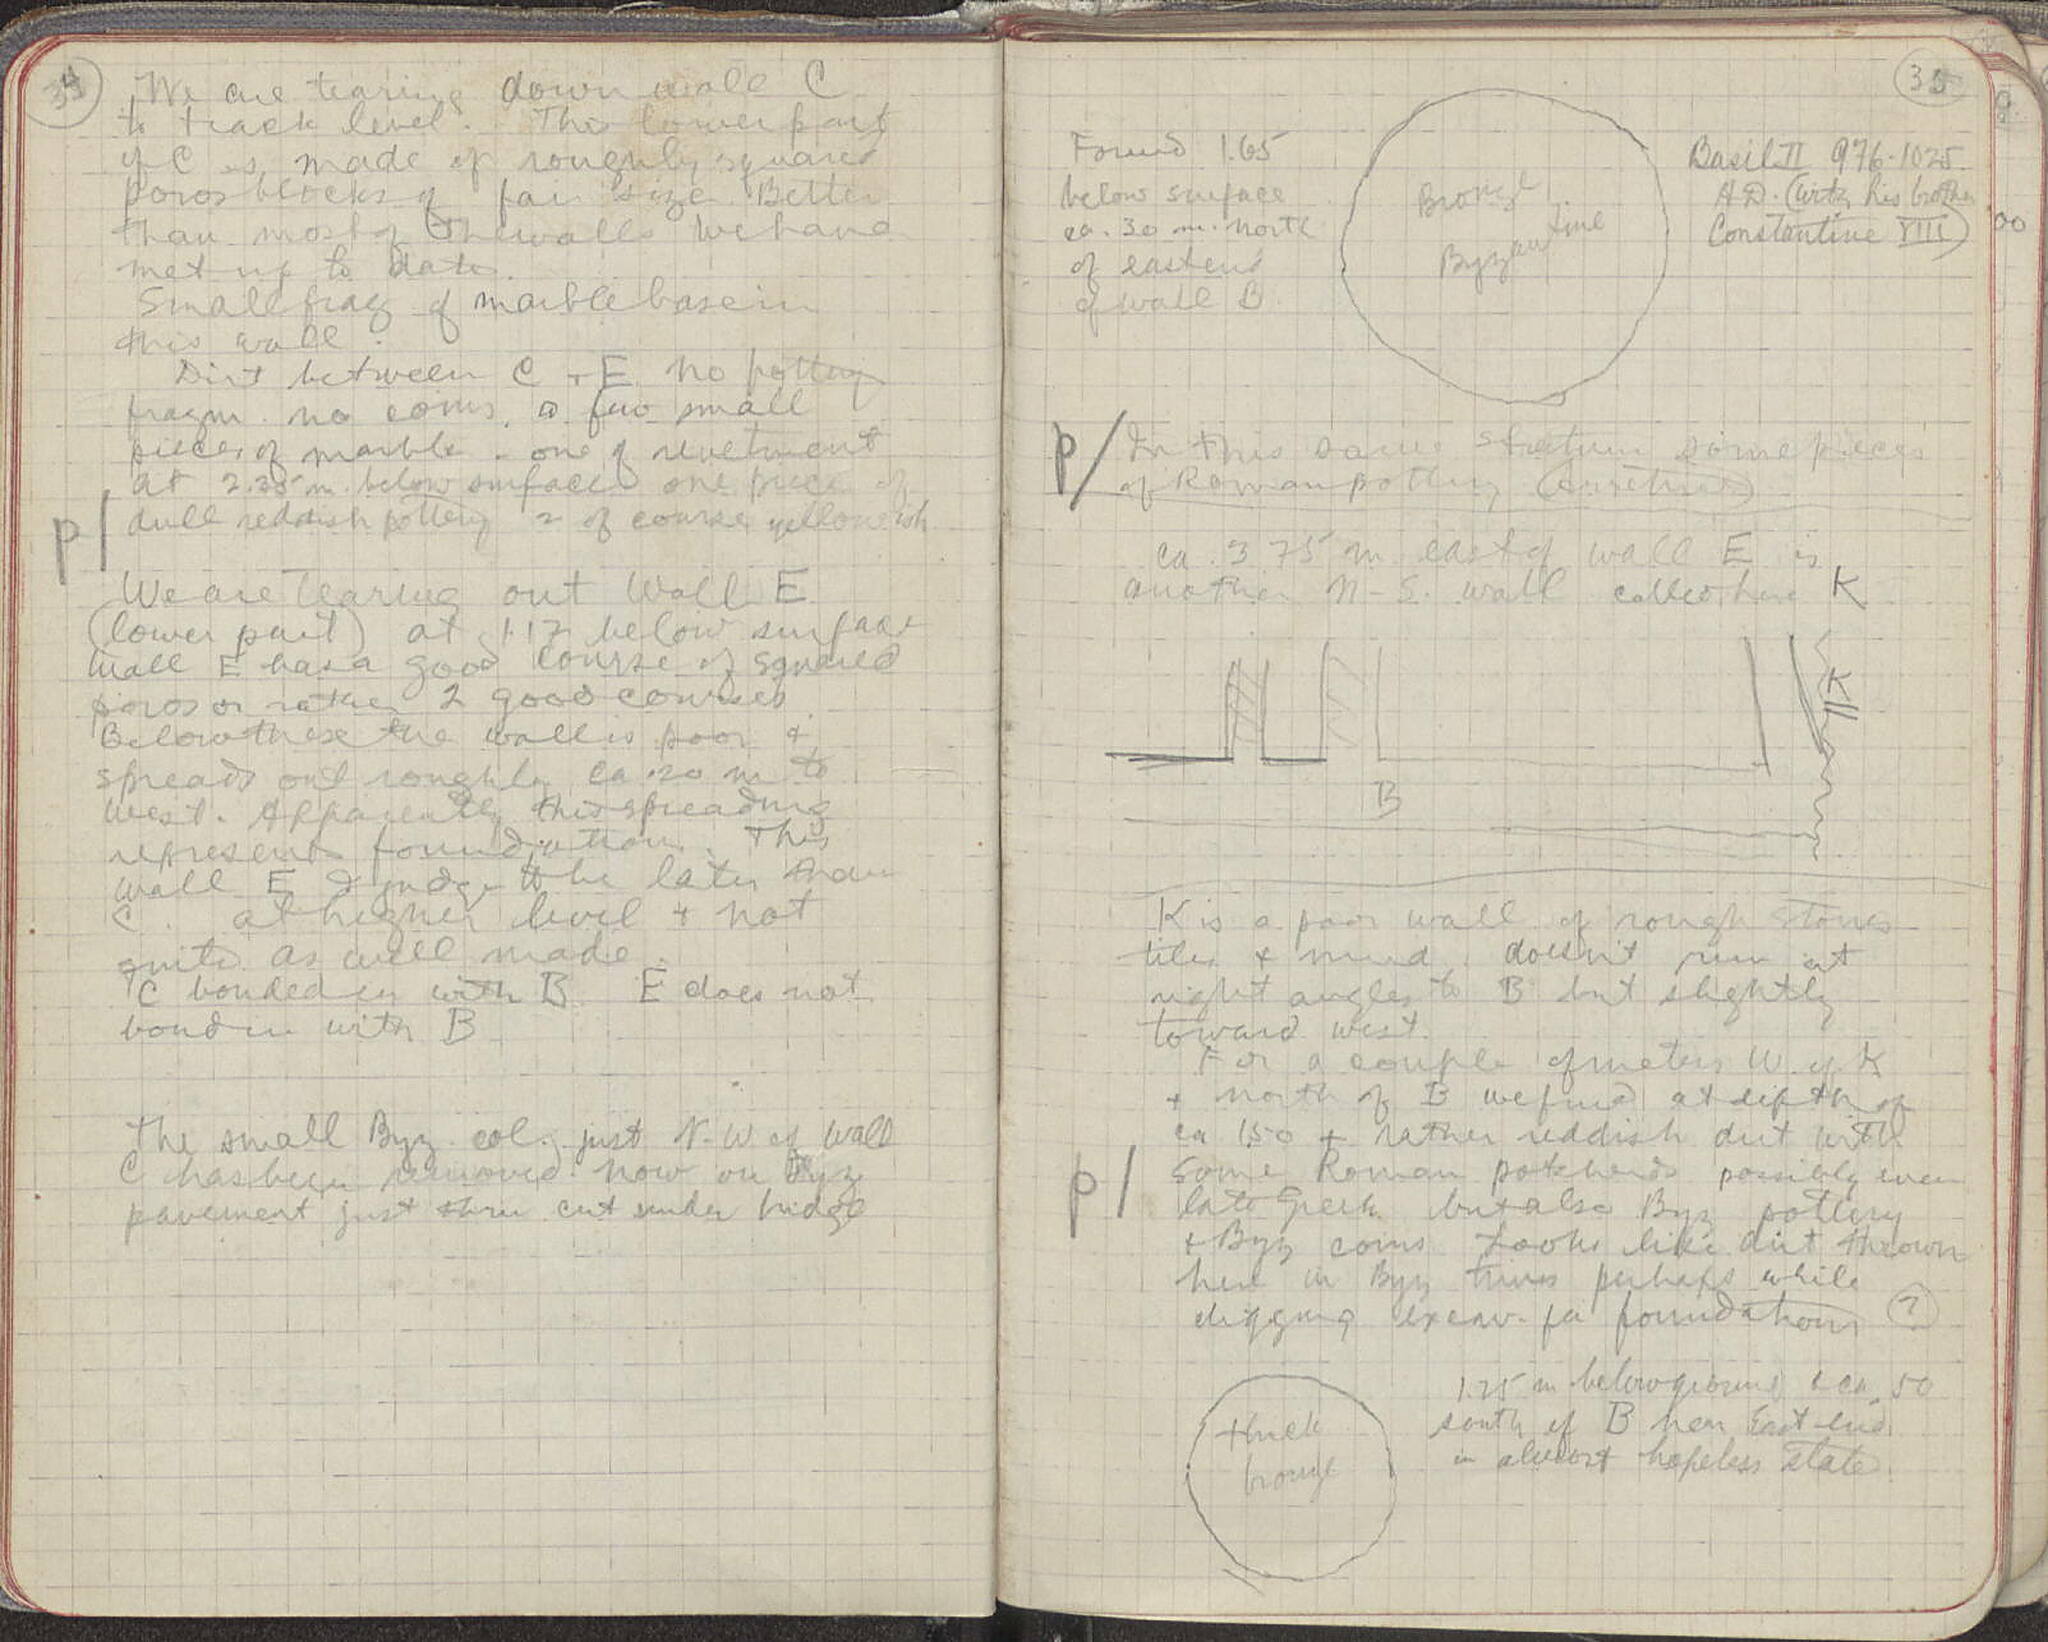 34
We are tearing down wall C
to track level. This lower part
of C is made of roughly squared
poros blocks of fair size. Better
than most of the walls we have
met up to date.
Small frag of marble base in
this wall.
Dirt between C + E no pottery
fragm. no coins, a few small
pieces of marble - one of revetment
at 2.35 m. below surface one piece of
p/ dull reddish pottery 2 of coarse yellowish
We are tearing out Wall E
(lower part) at 1.17 below surface
wall E has a good course of squared
poros or rather 2 good courses
Below these the wall is poor &
spreads out roughly ca .20 m to
west. Apparently this spreading
represents foundation. This
wall E I judge to be later than
C. at higher level + not
quite as well made.
C bonded in with B E does not
bond in with B
The small Byz. col. just N-W of wall
C has been removed. Now on Byz
pavement just thru cut under bridge
35
Found 1.65
below surface
ca. 30 m. north
of east end
of wall B
Bronze
Byzantine
Basil II 976-1025
A.D. (with his brother
Constantine VIII)
p/ In this same stratum some pieces
of Roman pottery (Arretine)
ca. 3.75 m east of wall E is
another N-S. wall called here K
K
B
K is a poor wall of rough stones
tiles + mud. doesn't run at
right angles to B but slightly
toward west.
For a couple of meters W. of K
+ north of B we find at depth of
ca 1.50 + rather reddish dirt with
p/ some Roman potsherds possibly even
late Greek but also Byz pottery
+ Byz coins. Looks like dirt thrown
here in Byz times perhaps while
digging excav. for foundations (?)
thick
bronze
1.25 m below ground & ca .50
south of B near East end
in almost hopeless state.